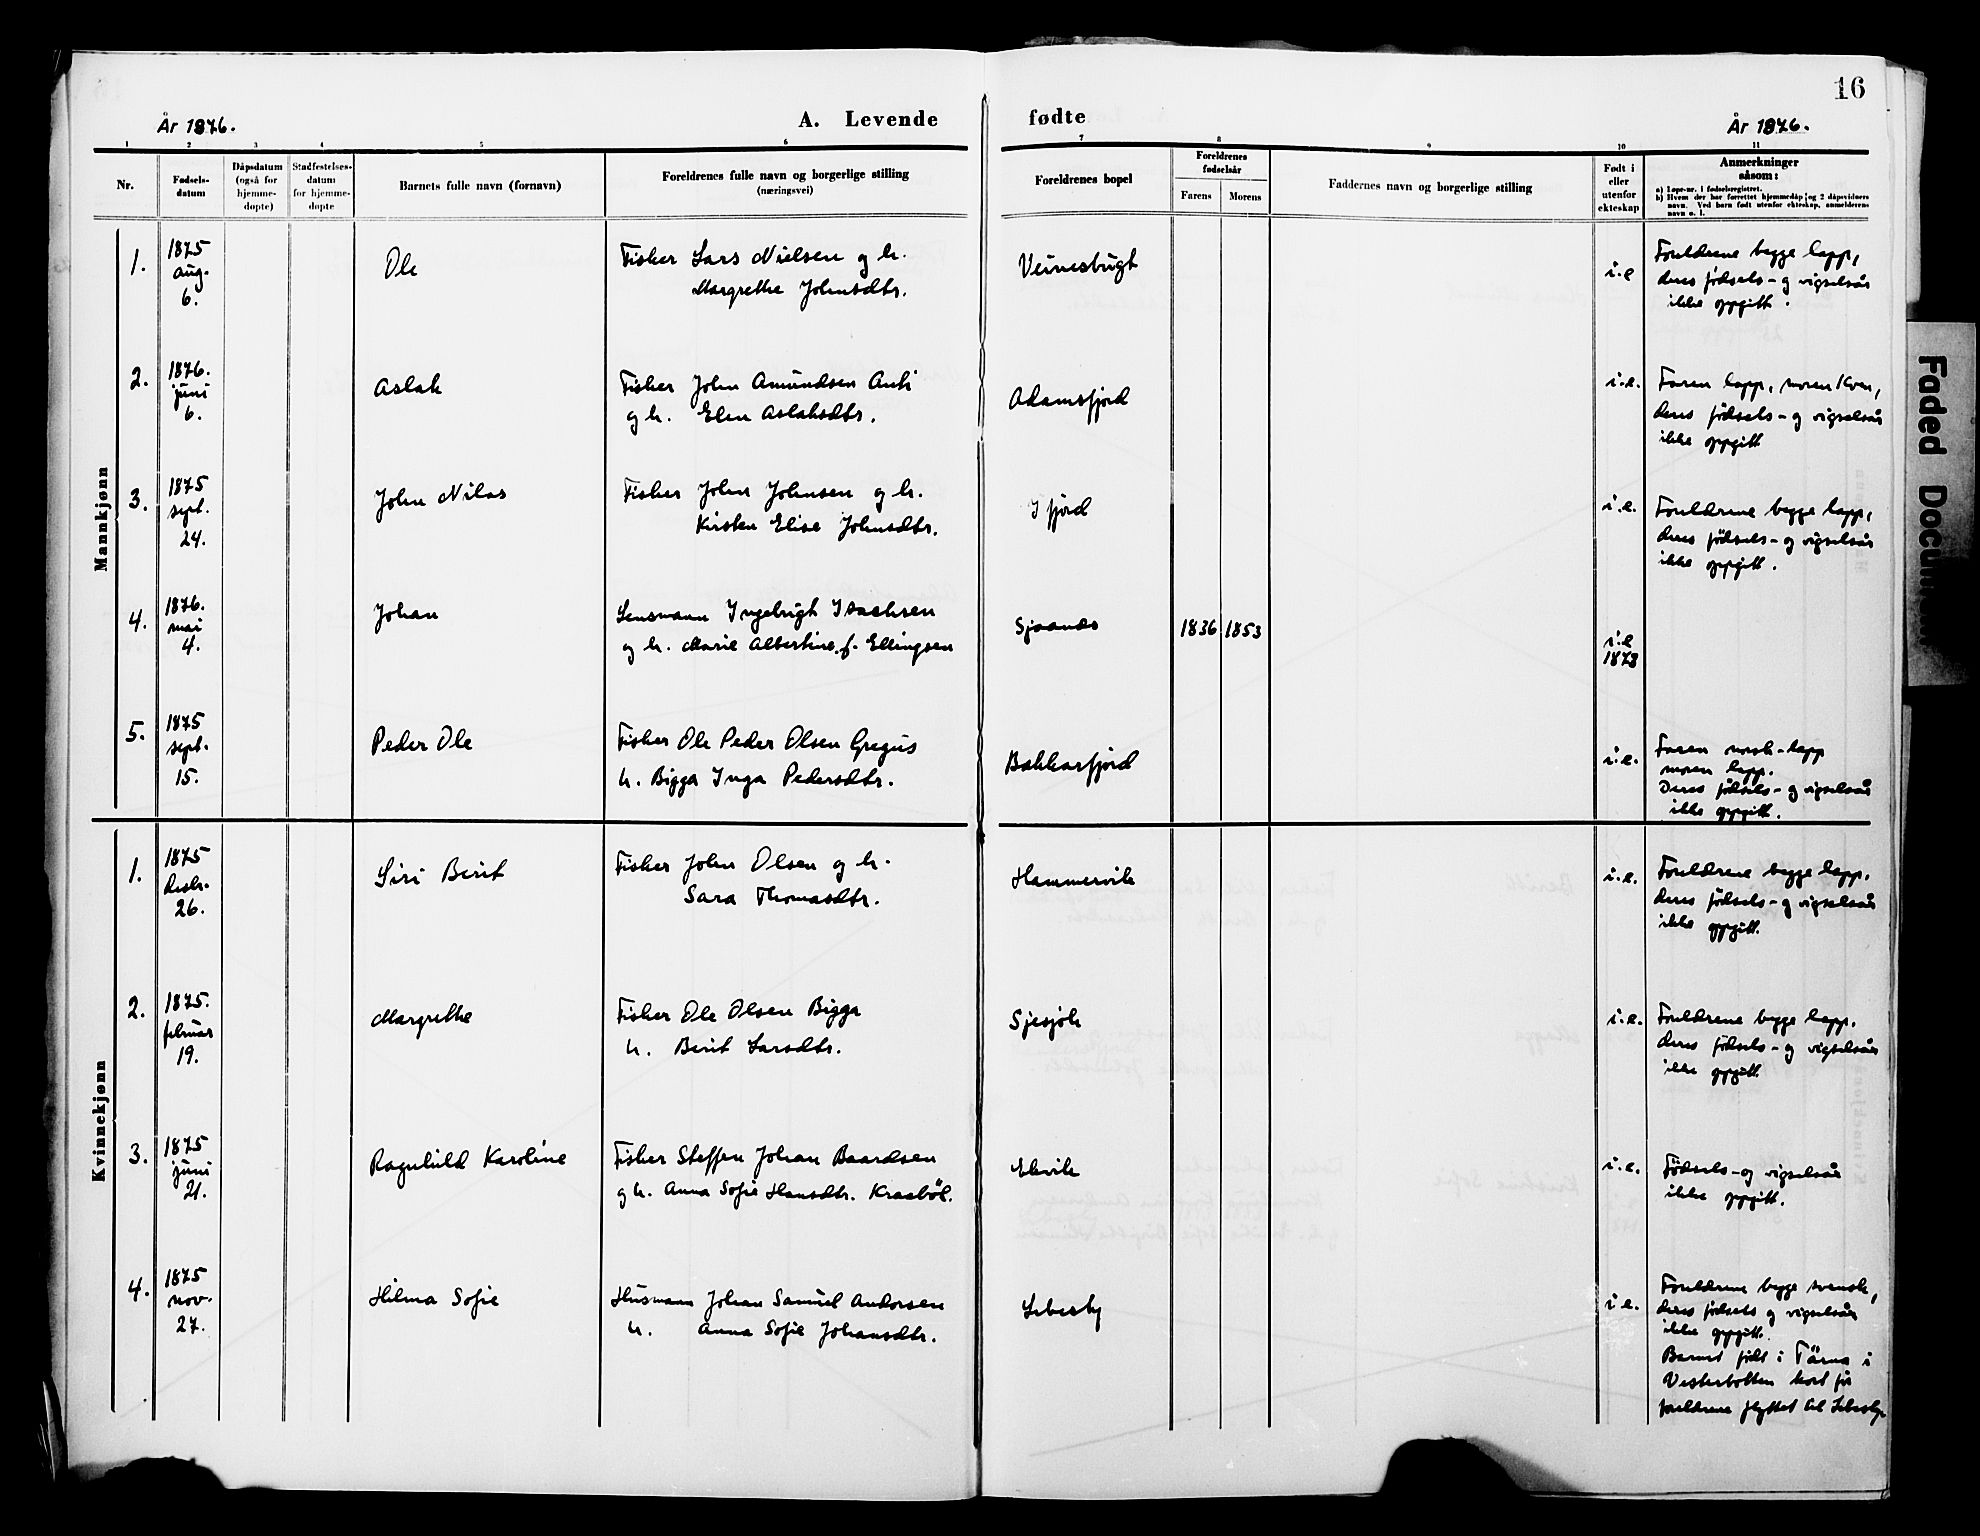 16
År 1876.
A. Levende
fødte
År 1876.
1 2 3 4 5 6 7 8 9 10 11
Nr.
Fødsels-
datum
Dåpsdatum
(også for
hjemme-
døpte)
Stadfestelses-
datum
for hjemme-
døpte
Barnets fulle navn (fornavn)
Foreldrenes fulle navn og borgerlige stilling
(næringsvei)
Foreldrenes bopel
Foreldrenes
fødselsår
Farens
Morens
Faddernes navn og borgerlige stilling
Født i
eller
utenfor
ekteskap
Anmerkninger
såsom:
a) Løpe-nr. i fødselsregistret.
b) Hvem der har forrettet hjemmedåp og 2 dåpsvidners
navn. Ved barn født utenfor ekteskap, anmelderens
navn o. l.
Mannkjønn
1.
1875
aug.
6.
Ole
Fisker Lars Nielsen og h.
Margrethe Johnsdtr.
Veinesbugt
i.e
Foreldrene begge lapp,
deres fødsels- og vigselsår
ikke oppgitt.
2.
1876.
juni
6.
Aslak
Fisker John Amundsen Anti
og h. Elen Aslaksdtr.
Adamsfjord
i.e.
Faren lapp, moren kven,
deres fødsels- og vigselsår
ikke oppgitt
3.
1875
sept.
24.
John Nilas
Fisker John Johnsen og h.
Kirsten Elise Johnsdtr.
Ifjord
i.e.
Foreldrene begge lapp,
deres fødsels- og vigselsår
ikke oppgitt.
4.
1876.
mai
4.
Johan
Lensmann Ingebrigt Isachsen
og h. Marie Albertine f. Ellingsen
Sjaanes
1836 1853
i.e
1873
5.
1875
sept.
15.
Peder Ole
Fisker Ole Peder Olsen Gregus
h. Bigga Inga Pedersdtr.
Bakkarfjord
i.e.
Faren norsk-lapp
moren lapp.
Deres fødsels- og vigselsår
ikke oppgitt.
Kvinnekjønn
1.
1875
desbr.
26.
Siri Berit
Fisker John Olsen og h.
Sara Thomasdtr.
Hammervik
i.e.
Foreldrene begge lapp.
deres fødsels- og vigselsår
ikke oppgitt.
2.
1875.
februar
19.
Margrethe
Fisker Ole Olsen Bigga
h. Berit Larsdtr.
Sjesjok
i.e.
Foreldrene begge lapp.
deres fødsels- og vigselsår
ikke oppgitt.
3.
1875
juni
21.
Ragnhild Karoline
Fisker Steffen Johan Baardsen
og h. Anna Sofie Hansdtr. Kraabøl.
Ekvik
i.e.
Fødsels- og vigselsår
ikke oppgitt.
4.
1875
nov.
27.
Hilma Sofie
Husmann Johan Samuel Andersen
h. Anna Sofie Johansdtr.
Lebesby
i.e.
Foreldrene begge svensk,
deres fødsels og vigselsår
ikke oppgitt.
Barnet født i Tärna i
Vesterbotten kort før
foreldrene flyttet til Lebesby
Faded Docum